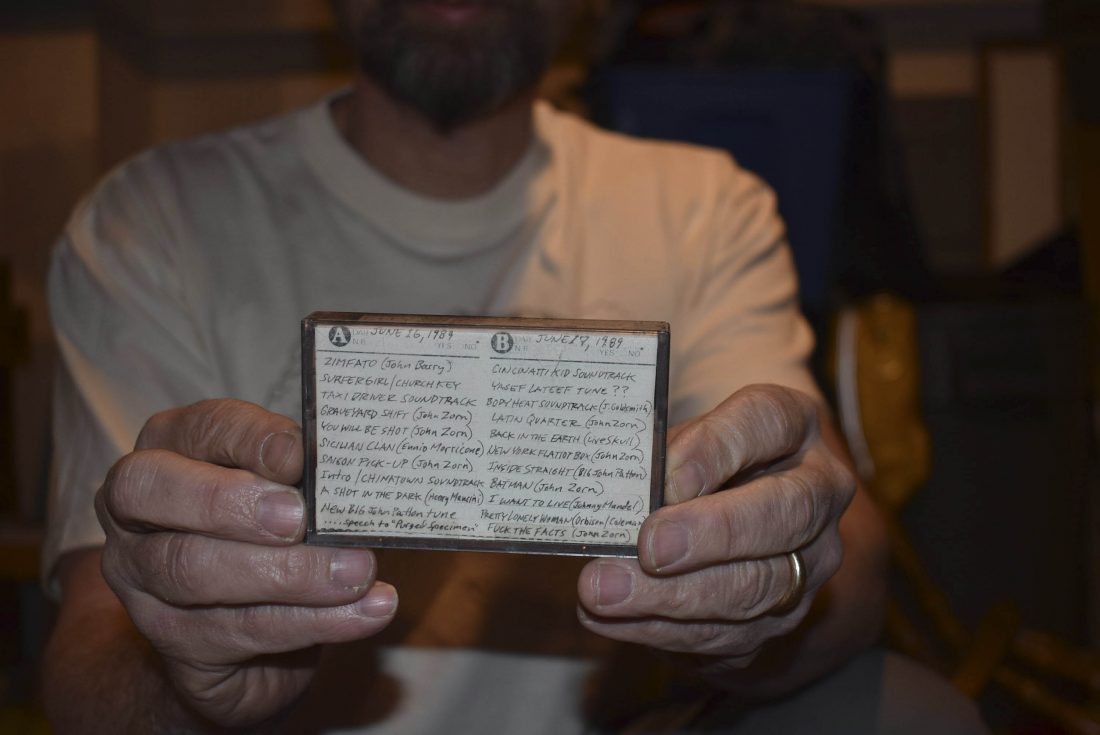 A DATE JUNE 26, 1989
N.R. YES NO
ZIMFATO (John Barry)
SURFERGIRL/CHURCH KEY
TAXI DRIVER SOUNDTRACK
GRAVEYARD SHIFT (John Zorn)
YOU WILL BE SHOT (John Zorn)
SICILIAN CLAN (Ennio Morricone)
SAIGON PICK-UP (John Zorn)
Intro/CHINATOWN SOUNDTRACK
A SHOT IN THE DARK (Henry Mancini)
NEW BIG John Patton tune
....speech to "Purged Specimen"
B DATE JUNE 27, 1989
N.R. YES NO
CINCINATTI KID SOUNDTRACK
YUSEF LATEEF TUNE ??
BODY HEAT SOUNDTRACK (J. Goldsmith)
LATIN QUARTER (John Zorn)
BACK IN THE EARTH (Live Skull)
NEW YORK FLAT TOP BOX (John Zorn)
INSIDE STRAIGHT (BIG John Patton)
BATMAN (John Zorn)
I WANT TO LIVE (Johnny Mandel)
PRETTY LONELY WOMAN (Orbison/Coleman
FUCK THE FACTS (John Zorn)